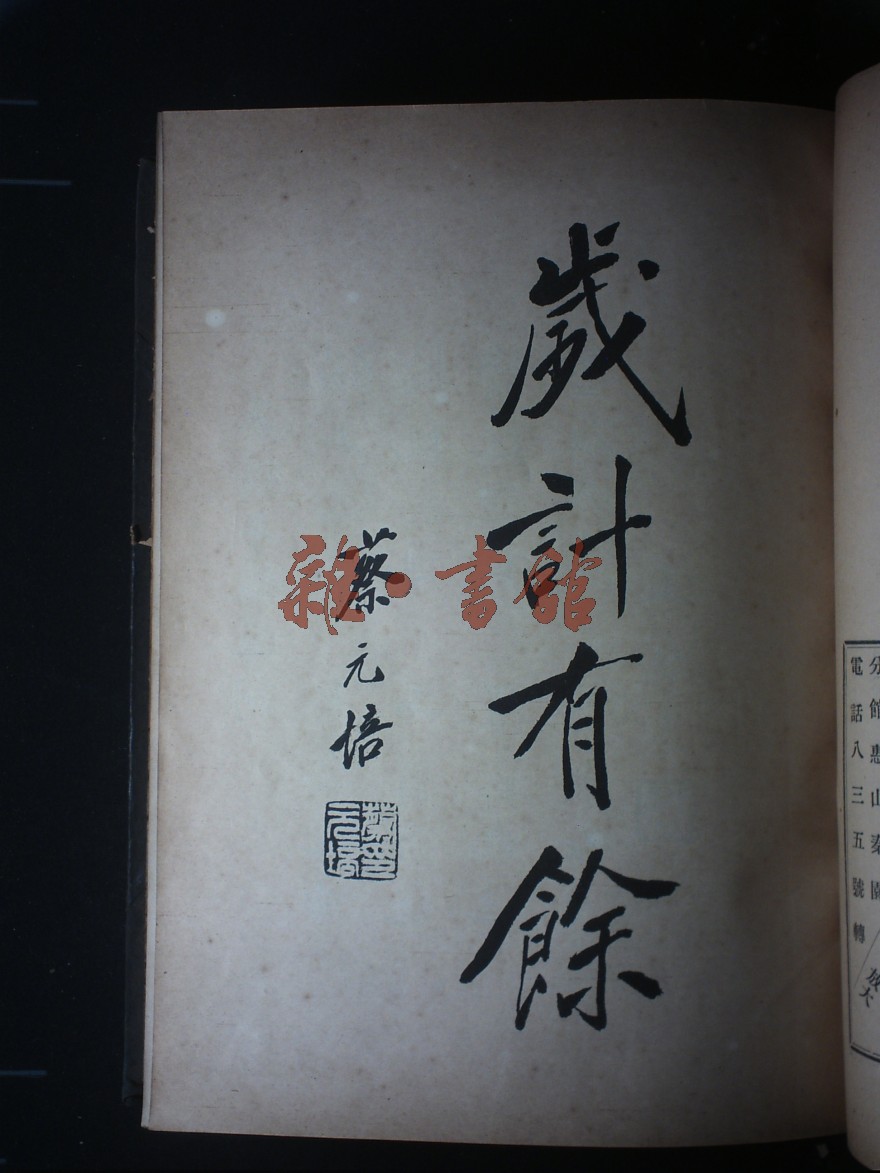 分館惠山秦園
電話八三五號轉
歲計有餘
蔡元培
蔡元培
雜·書館